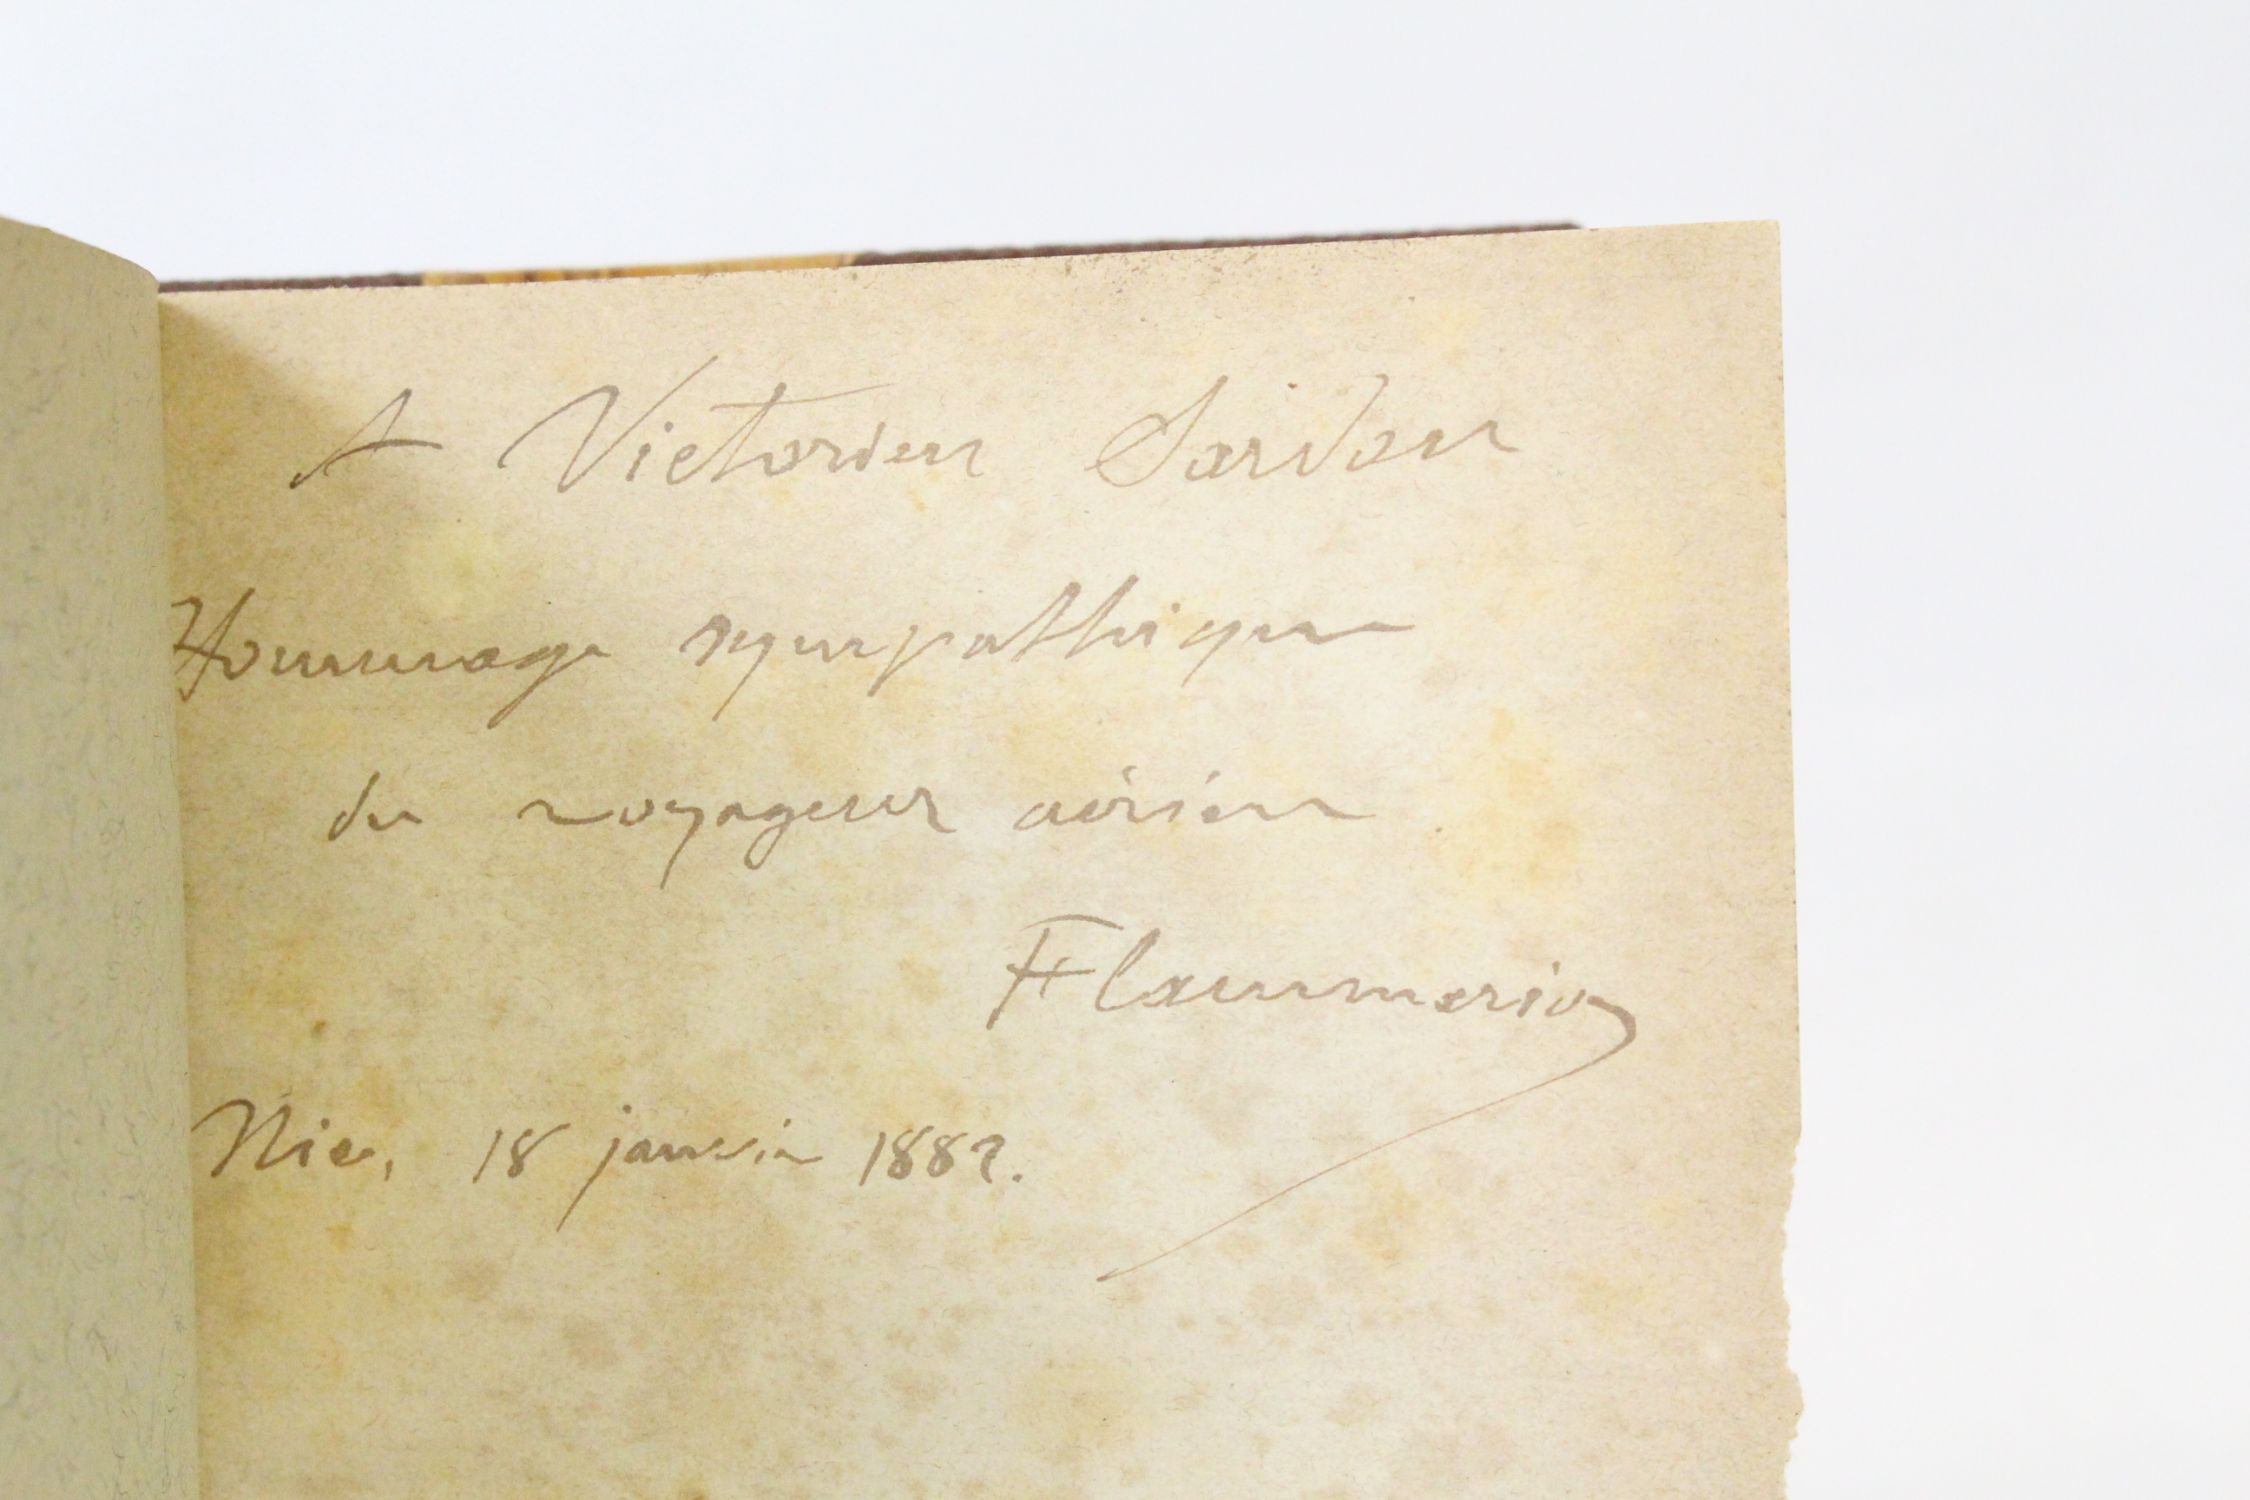 A Victorien Sardou
Hommage sympathique
du voyageur aérien
Flammarion
Nice, 18 janvier 1882.